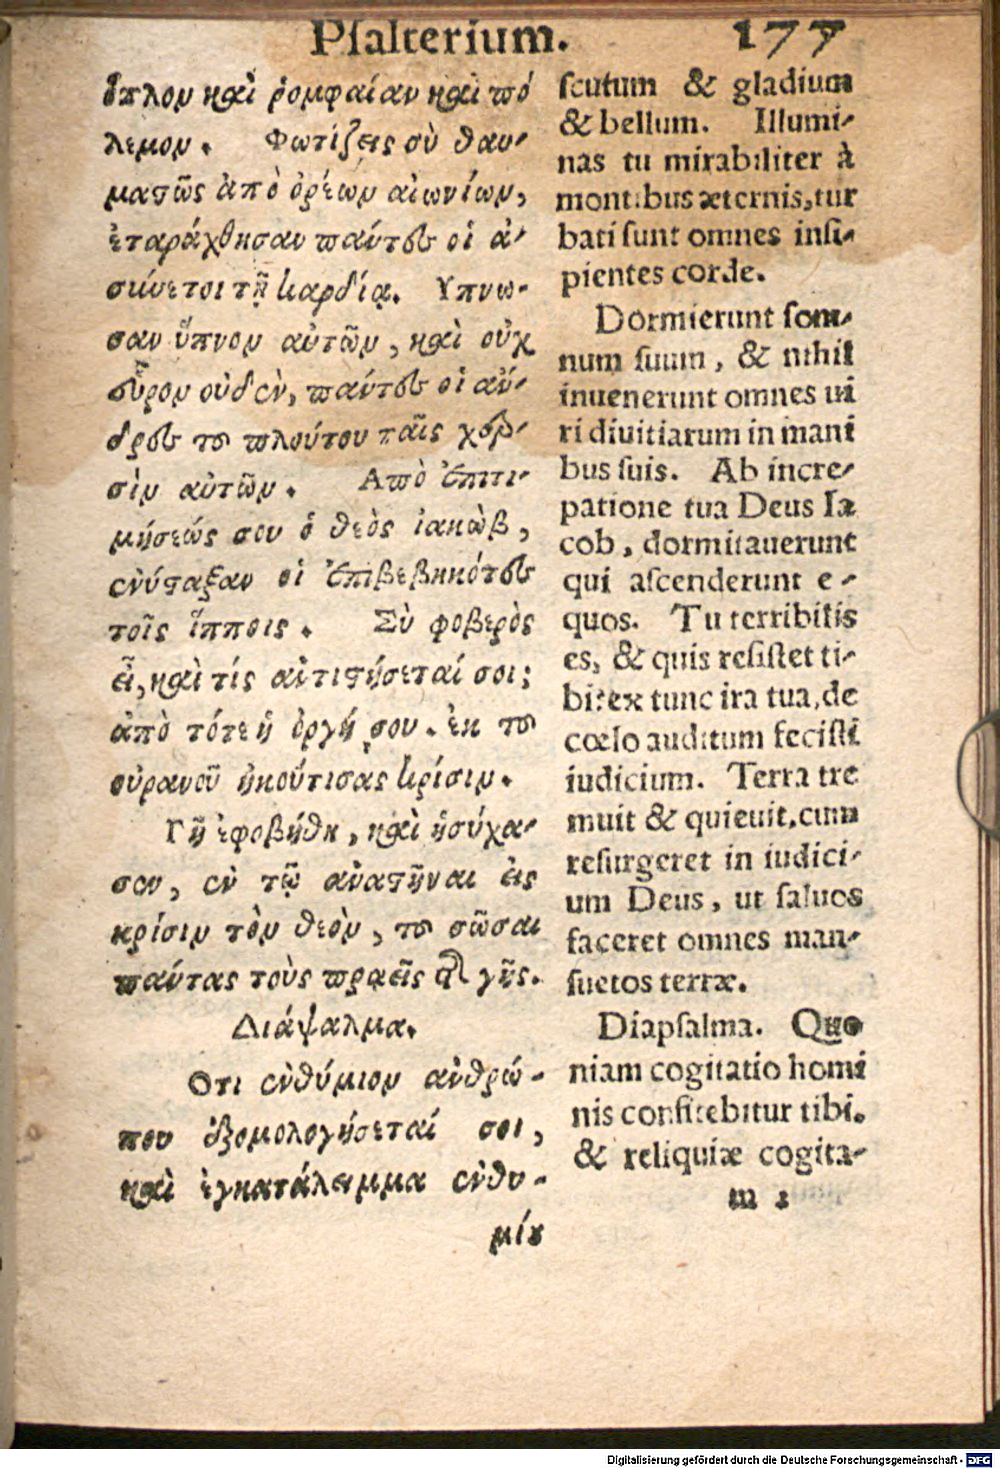 Psalterium. 177
ὅπλον καὶ ῥομφαίαν καὶ πό
λεμον. Φωτίζεις σὺ θαυ-
μαστῶς ἀπὸ ὀρέων αἰωνίων,
ἐταράχθησαν πάντες οἱ ἀ-
σύνετοι τῇ καρδίᾳ. Υπνω-
σαν ὕπνον αὐτῶν, καὶ οὐχ
εὗρον οὐδὲν, πάντες οἱ ἄν-
δρες τοῦ πλούτου ταῖς χερ-
σὶν αὐτῶν. Απὸ ἐπιτι-
μήσεώς σου ὁ θεὸς ἰακὼβ,
ἐνύσταξαν οἱ ἐπιβεβηκότες
τοῖς ἵπποις. Σὺ φοβερὸς
εἶ, καὶ τίς ἀντιστήσεταί σοι;
ἀπὸ τότε ἡ ὀργή σου. ἐκ τοῦ
οὐρανοῦ ἠκούτισας κρίσιν.
Γῆ ἐφοβήθη, καὶ ἡσύχα-
σεν, ἐν τῷ ἀναστῆναι εἰς
κρίσιν τὸν θεὸν, τοῦ σῶσαι
πάντας τοὺς πραεῖς τῆς γῆς.
Διάψαλμα.
Οτι ἐνθύμιον ἀνθρώ-
που ἐξομολογήσεταί σοι,
καὶ ἐγκατάλειμμα ἐνθυ-
μίου
scutum & gladium
& bellum. Illumi-
nas tu mirabiliter à
montibus æternis, tur
bati sunt omnes insi-
pientes corde.
Dormierunt som-
num suum, & nihil
inuenerunt omnes ui
ri diuitiarum in mani
bus suis. Ab incre-
patione tua Deus Ia
cob, dormitauerunt
qui ascenderunt e-
quos. Tu terribilis
es, & quis resistet ti-
bi? ex tunc ira tua, de
cœlo auditum fecisti
iudicium. Terra tre
muit & quieuit, cum
resurgeret in iudici-
um Deus, ut saluos
faceret omnes man-
suetos terræ.
Diapsalma. Quo
niam cogitatio homi
nis confitebitur tibi.
& reliquiæ cogita-
m 1
Digitalisierung gefördert durch die Deutsche Forschungsgemeinschaft - DFG